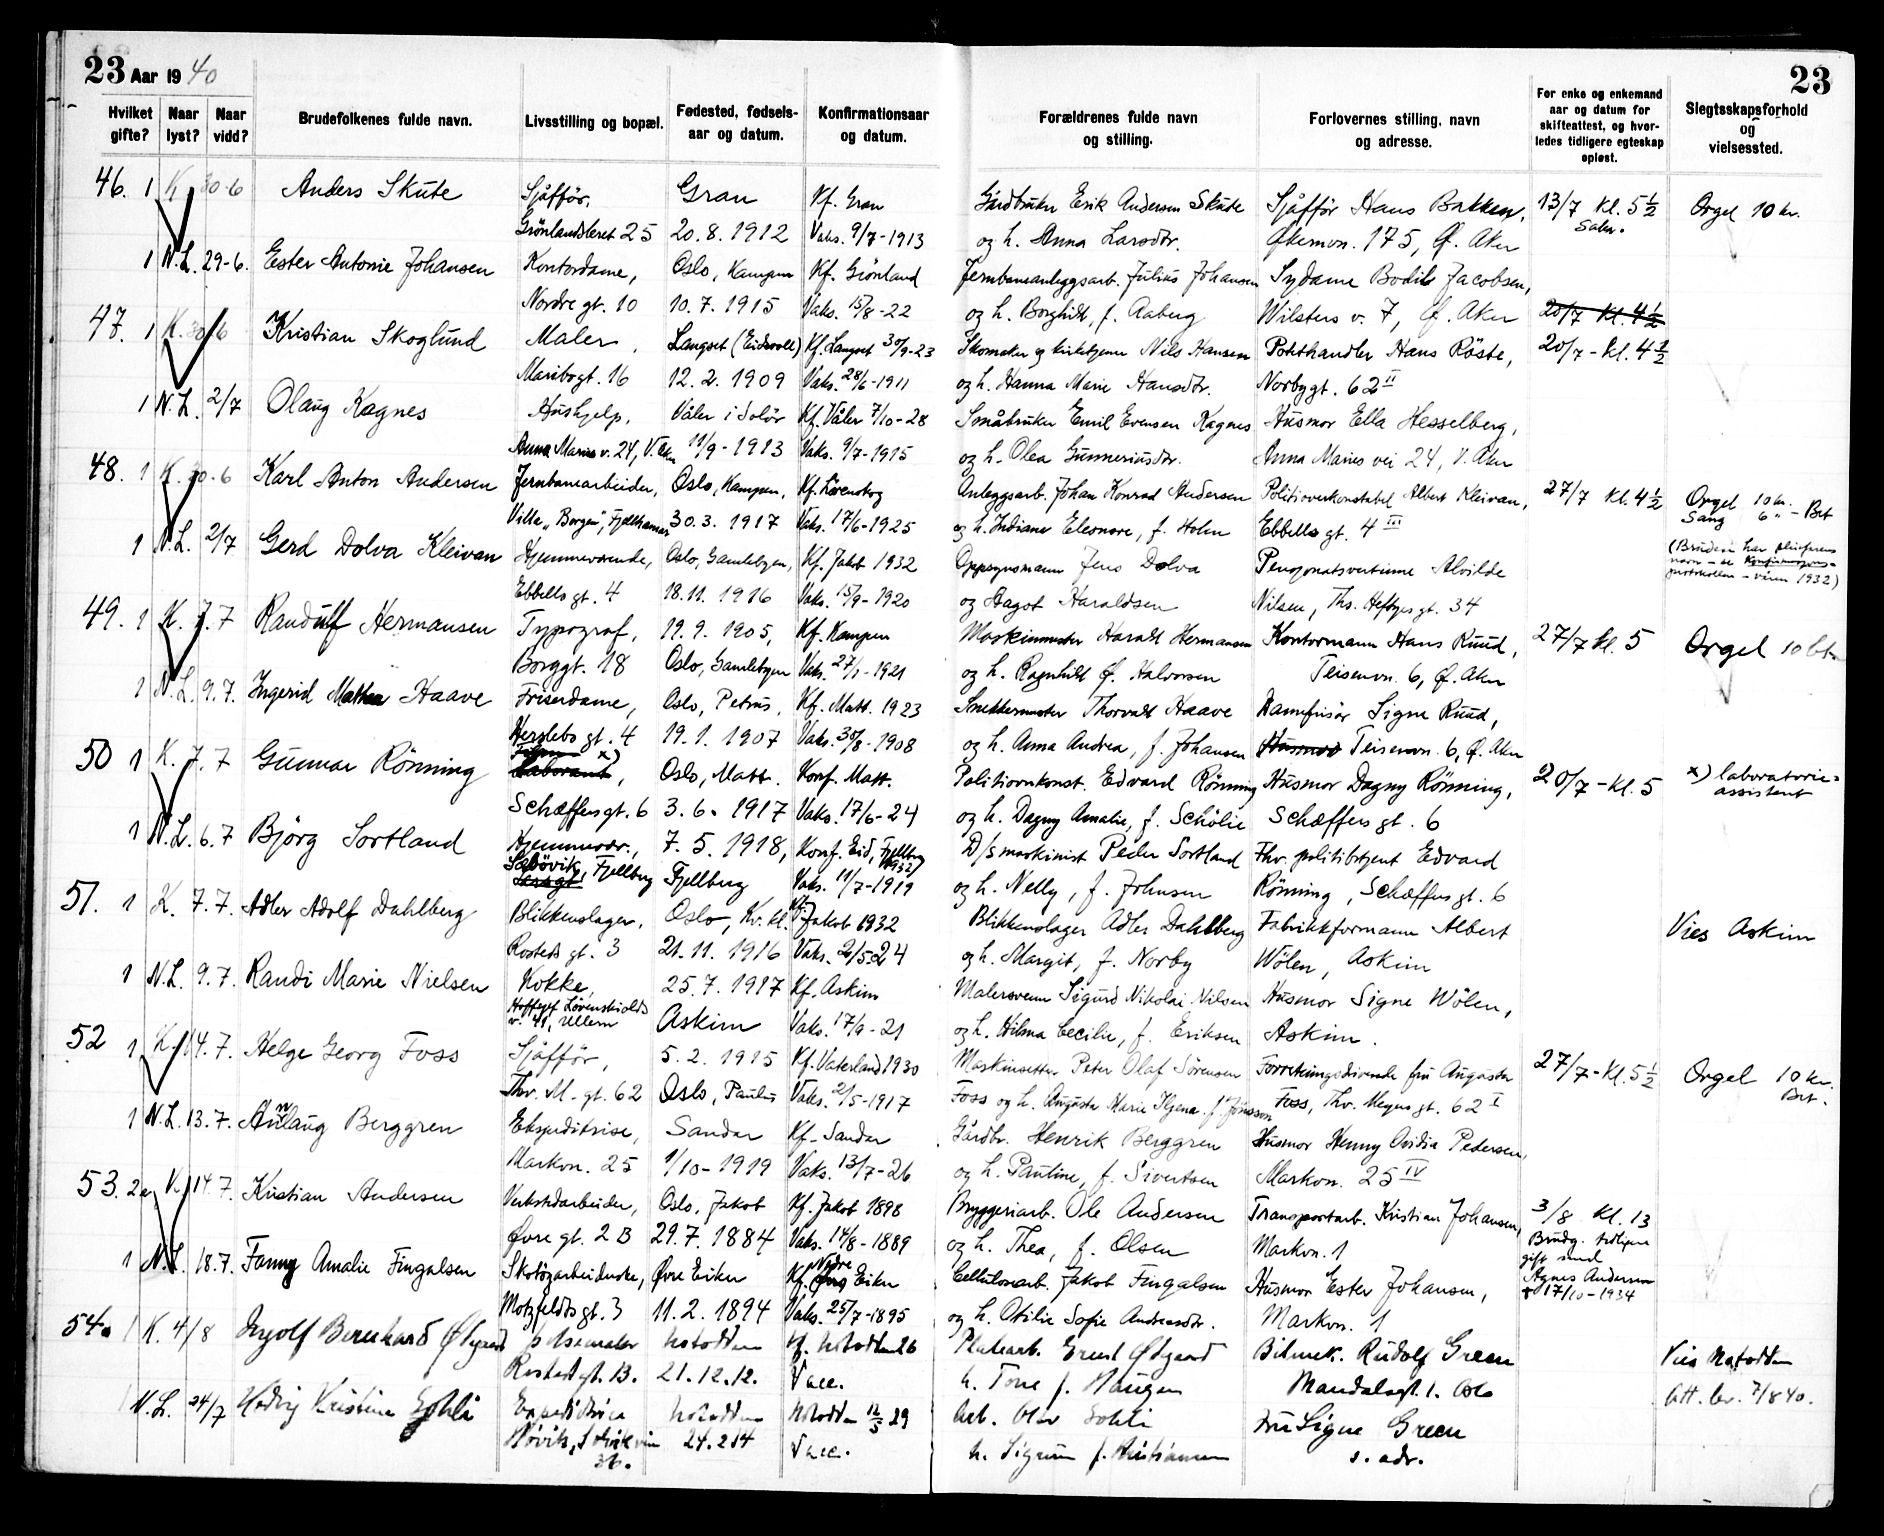 23 Aar 1940
23
Hvilket gifte?
Naar lyst?
Naar vidd?
Brudefolkenes fulde navn.
Livsstilling og bopæl.
Fødested, fødsels-aar og datum.
Konfirmationsaar og datum.
Forældrenes fulde navn og stilling.
Forlovernes stilling, navn og adresse.
For enke og enkemand aar og datum for skifteattest, og hvor-ledes tidligere egteskap opløst.
Slegtsskapsforhold og vielsessted.
46. 1 K 30-6 Anders Skute Sjåffør, Gran Kf. Gran Gårdbruker Erik Andersen Skute Sjåffør Hans Bakken, 13/7 Kl. 5 1/2 Orgel 10 kr.
Grönlandsleret 25 20.8.1912 Vaks. 9/7-1913 og h. Anna Larsdtr. Økernvn. 175, Ø. Aker
1 N.L. 29-6. Ester Antonie Johansen Kontordame, Oslo, Kampen Kf. Grönland Jernbaneanleggsarb. Julius Johansen Sydame Bodil Jacobsen,
Nordre gt. 10 10.7.1915 Vaks. 15/8-22 og h. Borghild, f. Aaberg Wilsters v. 7, Ø. Aker 20/7 Kl. 4 1/2
47. 1 K. 30/6 Kristian Skoglund Maler, Langset (Eidsvoll) Kf. Langset 30/9-23 Skomaker og kirketjener Nils Hansen Potthandler Hans Röste, 20/7 - Kl. 4 1/2
Maribogt. 16 12.2.1909 Vaks. 28/6-1911 og h. Hanna Marie Hansdtr. Norbygt. 62 II
1 N.L. 2/7 Olaug Kagnes Hushjelp, Våler i Solör Kf. Våler 7/10-28 Småbruker Emil Evensen Kagnes Husmor Ella Hesselberg,
Anna Maries v. 24, V. Aker 11/9-1913 Vaks. 9/7-1915 og h. Olea Gunneriusdtr. Anna Maries vei 24, V. Aker
48. 1 K. 30-6 Karl Anton Andersen Jernbanearbeider, Oslo, Kampen, Kf. Lörenskog Anleggsarb. Johan Konrad Andersen Politioverkonstabel Albert Kleivan, 27/7 Kl. 4 1/2 Orgel 10 kr.
Sang 6 " - Bet
Villa "Borgen", Fjellhamar 30.3.1917 Vaks. 17/6-1925 og h. Indiane Eleonore, f. Holm Ebbells gt. 4 III
1 N.L. 2/7 Gerd Dolva Kleivan Hjemmeværende, Oslo, Gamlebyen, Kf. Jakob 1932 Oppsynsmann Jens Dolva Pensjonatsvertinne Alvilde (Bruden har
navn - se Konfirmasjons-
protokollen - 1932)
Ebbells gt. 4 18.11.1916 Vaks. 15/9-1920 og Dagot Haraldsen Nilsen, Ths. Heftyes gt. 34
49. 1 K. 7.7 Randulf Hermansen Typograf, 19.9.1905, Kf. Kampen Maskinmester Harald Hermansen Kontormann Hans Ruud, 27/7 Kl. 5 Orgel 10 bt.
Borggt. 18 Oslo, Gamlebyen Vaks. 27/1-1921 og h. Ragnhild Ø. Halvorsen Teisenvn. 6, Ø. Aker
1 N.L. 9.7. Ingerid Mathea Haave Friserdame, Oslo, Petrus, Kf. Matt. 1923 Snekkermester Thorvald Haave Damefrisör Signe Ruud,
Herslebs gt. 4 19.1.1907 Vaks. 30/8-1908 og h. Anna Andrea, f. Johansen Husmor Teisenvn. 6, Ø. Aker
50 1 K. 7.7 Gunnar Rönning Laborant, x) Oslo, Matt. Konf. Matt. Politioverkonst. Edvard Rönning Husmor Dagny Rönning, 20/7 - Kl. 5 x) laboratorie-
assistent
Schæffers gt. 6 3.6.1917 Vaks. 17/6-24 og h. Dagny Amalie, f. Schölie Schæffers gt. 6
1 N.L. 6.7 Björg Sortland Hjemmevær., 7.5.1918, Konf. Eid, Fjellberg 1932) D/S maskinist Peder Sortland Fhv. politibetjent Edvard
Sæbövik, Fjellberg Fjellberg Vaks. 11/7-1919 og h. Nelly, f. Johnsen Rönning, Schæffers gt. 6
51. 1 K. 7.7. Adler Adolf Dahlberg Blikkenslager, Oslo, Kv. kl. Kf. Jakob 1932 Blikkenslager Adler Dahlberg Fabrikkformann Albert Vies Askim
Rosteds gt. 3 21.11.1916 Vaks. 2/5-24 og h. Margit, f. Norby Wölen, Askim
1 N.L. 9.7. Randi Marie Nielsen Kokke, 25.7.1917 Kf. Askim Malersvenn Sigurd Nikolai Nilsen Husmor Signe Wölen,
Hoffsjef Lövenskiolds v. 41, Ullern Askim Vaks. 17/9-21 og h. Hilma Cecilie, f. Eriksen Askim.
52 1 K. 14.7. Helge Georg Foss Sjåffør, 5.2.1915 Kf. Vaterland 1930 Maskinsetter Peter Olaf Sørensen Forretningsdrivende fru Augusta 27/7 - Kl. 5 1/2 Orgel 10 kr.
Bet.
Thv. M. gt. 62 Oslo, Paulus Vaks. 2/5-1917 Foss og h. Augusta Marie f. Jönsson Foss, Thv. Meyers gt. 62 I
1 N.L. 13.7. Annlaug Berggren Ekspeditrise, Sandar Kf. Sandar Gårdbr. Henrik Berggren Husmor Henny Ovidia Pedersen,
Markvn. 25 1/10-1919 Vaks. 13/7-26 og h. Pauline, f. Sivertsen Markvn. 25 IV
53. 2e K. 14.7. Kristian Andersen Verkstedarbeider, Oslo, Jakob Kf. Jakob 1898 Bryggeriarb. Ole Andersen Transportarb. Kristian Johansen, 3/8 Kl. 13
Øvre gt. 2 B 29.7.1884 Vaks. 14/8-1889 og h. Thea, f. Olsen Markvn. 1 Brudg. tidligere
gift med
1 N.L. 18.7. Fanny Amalie Fingalsen Skotøyarbeiderske, Øvre Eiker Kf. Øvre Nedre Eiker Cellulosearb. Jakob Fingalsen Husmor Ester Johansen, Agnes Andersen
+ 17/10-1934
Motzfeldts gt. 3 11.2.1894 Vaks. 25/7-1895 og h. Otilie Sofie Andreasdtr. Markvn. 1
54. 1 K. 4/8 Ingolf Bernhard Ødegaard pølsemaker Notodden Kf. Notodden 26 Platearb. Ernst Ødegaard Bilmek. Rudolf Green Vies Notodden
Rostedsgt. 13. 21.12.12. Vacc. h. Tone f. Haugen Mandalsgt. 1. Oslo Att. lev. 7/8 40.
N.L. 24/7 Hedvig Kristine Gohli Expeditrice Notodden Notodden 12/5 29 Arb. Olav Gohli Fru Signe Green
Høvik, 36. 24.2.14 Vacc. h. Sigrun f. Kristiansen s. adr.